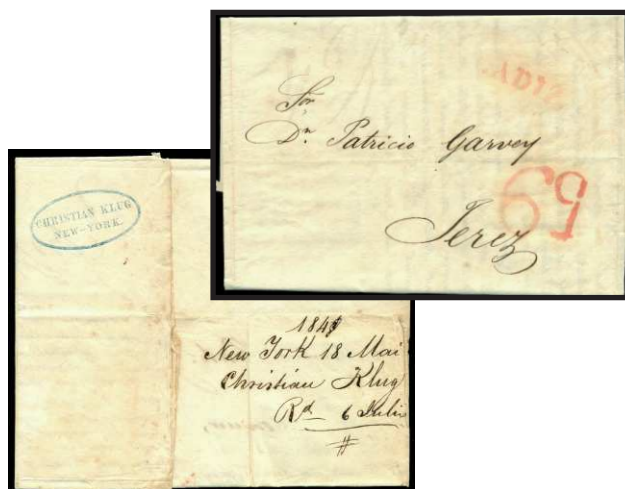 Sor
Dn. Patricio Garvey
Jerez
CHRISTIAN KLUG
NEW-YORK.
New York 18 Mai
Christian Klug
Rd 6 Julio